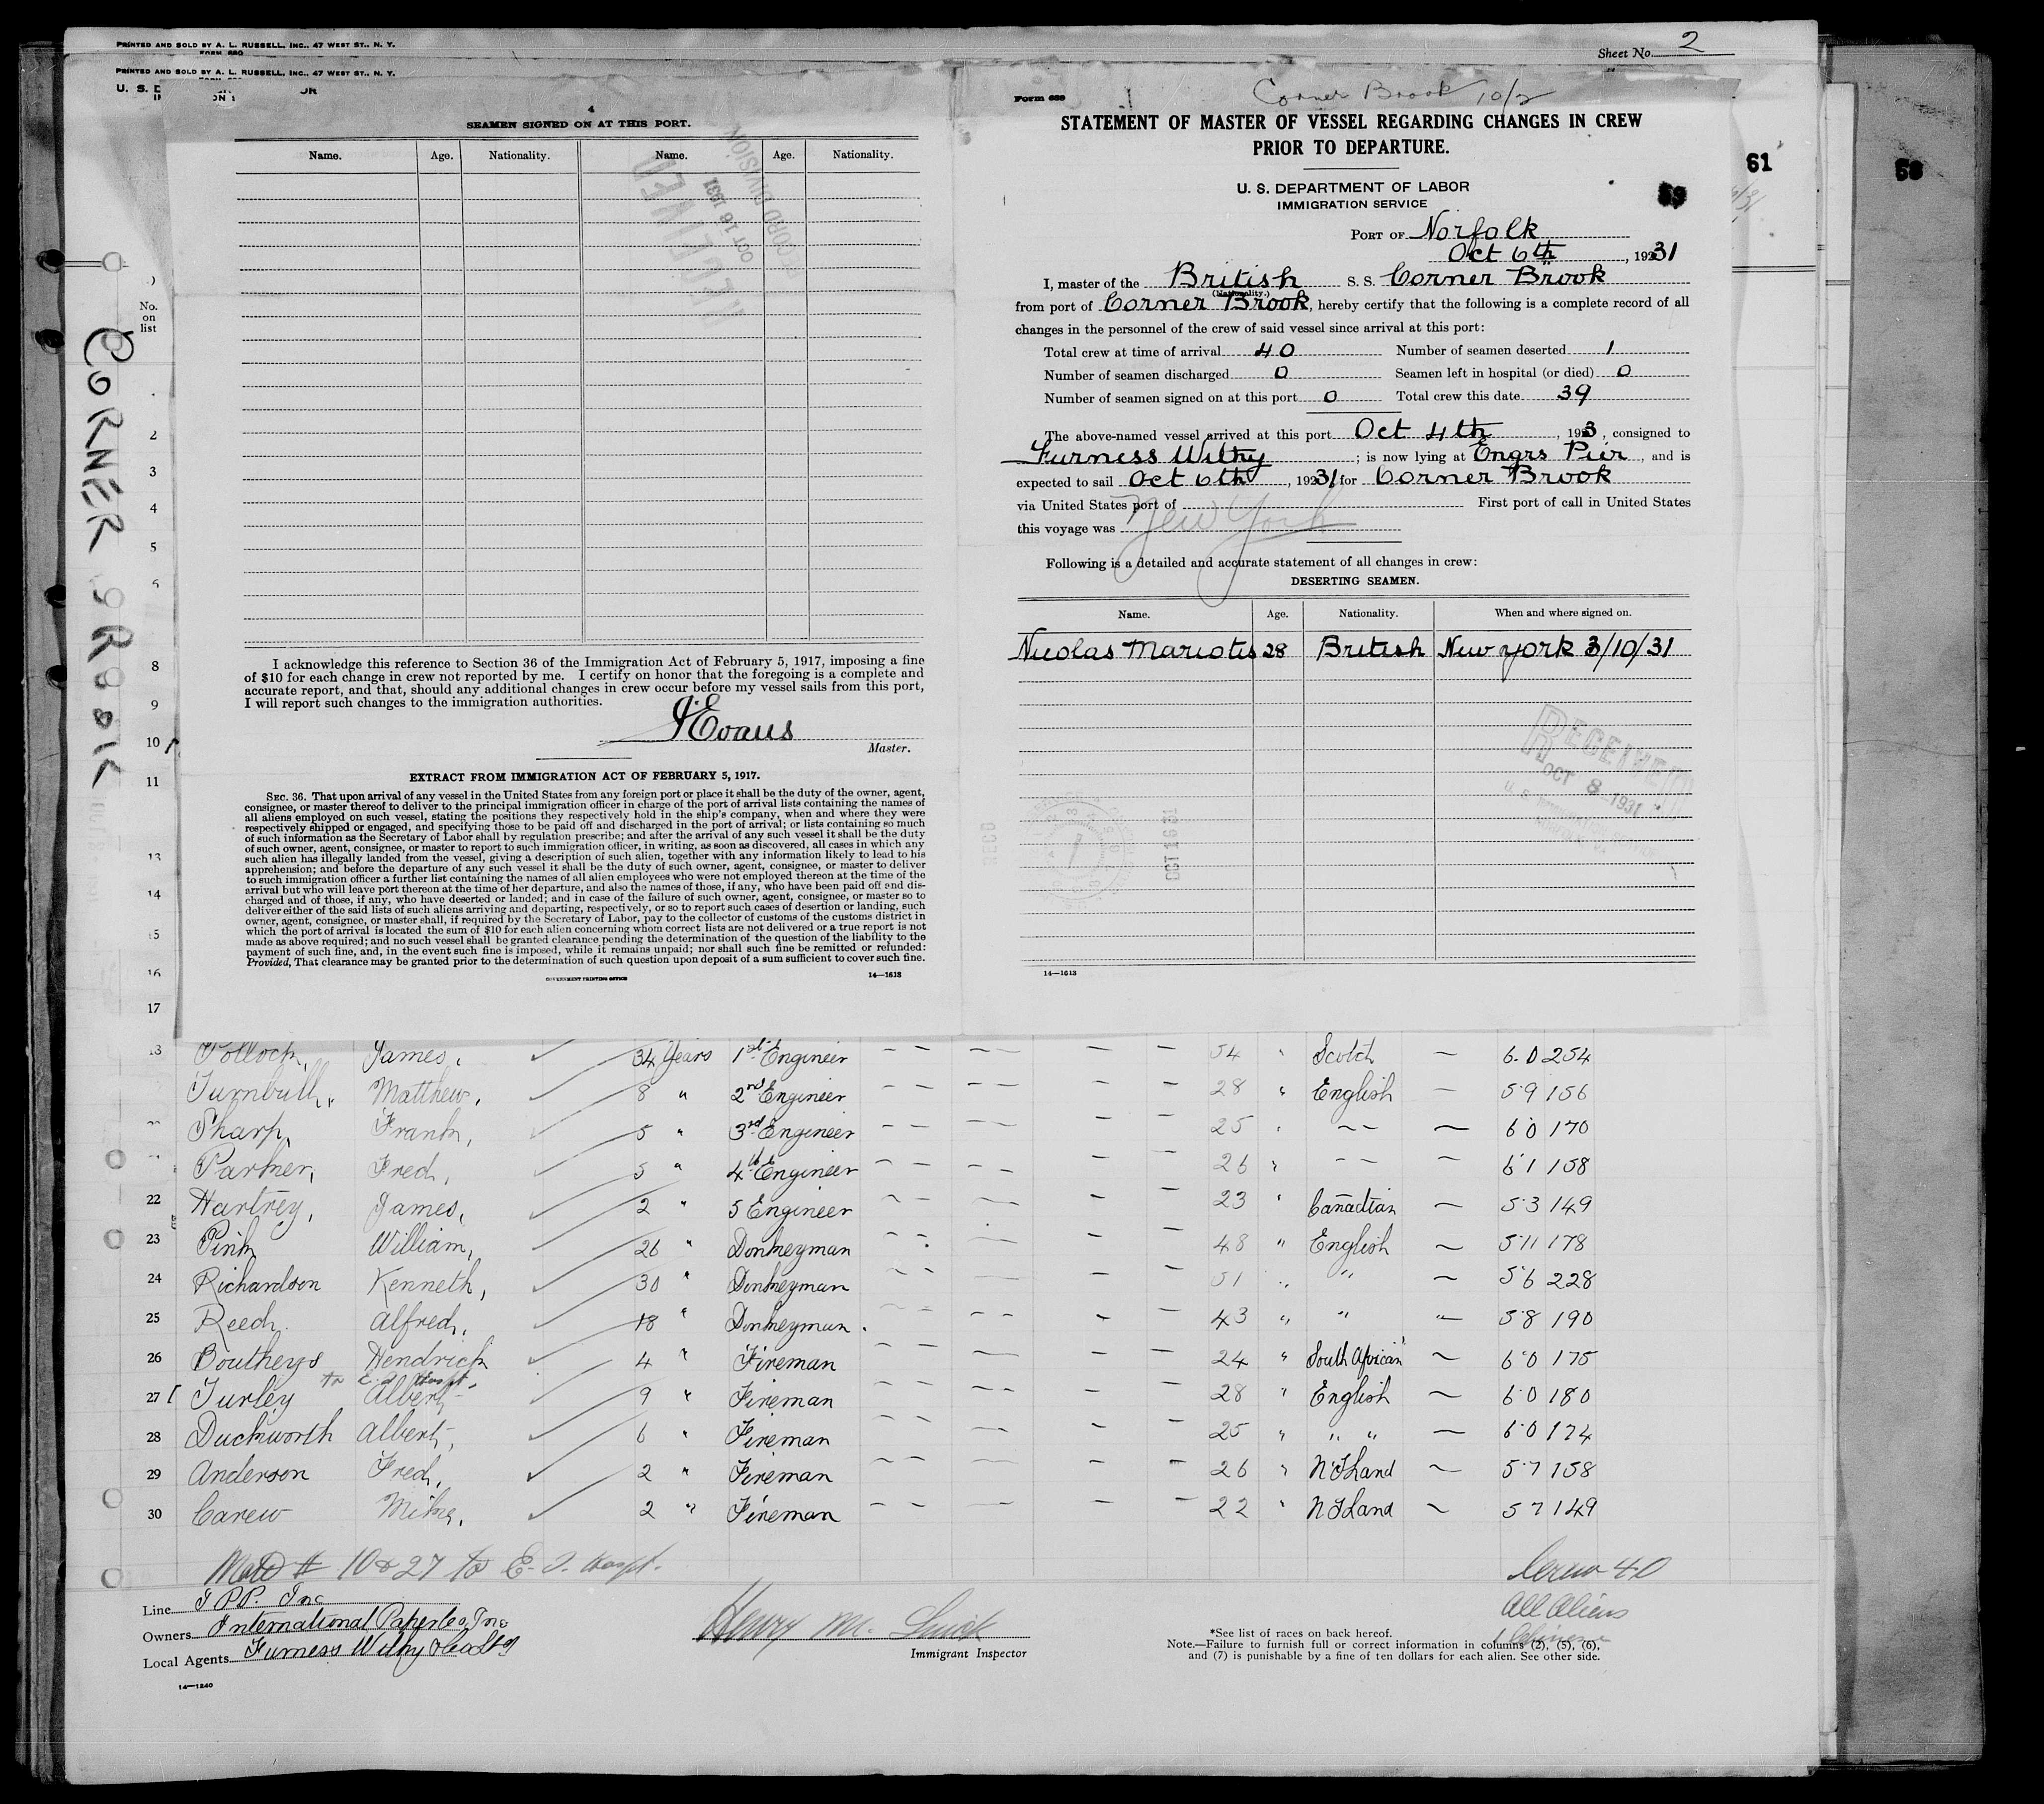 PRINTED AND SOLD BY A. L. RUSSELL, INC., 47 WEST ST., N. Y.
Sheet No. 2
PRINTED AND SOLD BY A. L. RUSSELL, INC., 47 WEST ST., N. Y.
U. S.
4
SEAMEN SIGNED ON AT THIS PORT.
Name. Age. Nationality. Name. Age. Nationality.
RECEIVED
OCT 16 1931
RECORD DIVISION
CORNER BROOK
No.
on
list
2
3
4
5
6
8
9
10
11
13
14
15
16
17
I acknowledge this reference to Section 36 of the Immigration Act of February 5, 1917, imposing a fine
of $10 for each change in crew not reported by me. I certify on honor that the foregoing is a complete and
accurate report, and that, should any additional changes in crew occur before my vessel sails from this port,
I will report such changes to the immigration authorities.
J Evans
Master.
EXTRACT FROM IMMIGRATION ACT OF FEBRUARY 5, 1917.
SEC. 36. That upon arrival of any vessel in the United States from any foreign port or place it shall be the duty of the owner, agent,
consignee, or master thereof to deliver to the principal immigration officer in charge of the port of arrival lists containing the names of
all aliens employed on such vessel, stating the positions they respectively hold in the ship's company, when and where they were
respectively shipped or engaged, and specifying those to be paid off and discharged in the port of arrival; or lists containing so much
of such information as the Secretary of Labor shall by regulation prescribe; and after the arrival of any such vessel it shall be the duty
of such owner, agent, consignee, or master to report to such immigration officer, in writing, as soon as discovered, all cases in which any
such alien has illegally landed from the vessel, giving a description of such alien, together with any information likely to lead to his
apprehension; and before the departure of any such vessel it shall be the duty of such owner, agent, consignee, or master to deliver
to such immigration officer a further list containing the names of all alien employees who were not employed thereon at the time of the
arrival but who will leave port thereon at the time of her departure, and also the names of those, if any, who have been paid off and dis-
charged and of those, if any, who have deserted or landed; and in case of the failure of such owner, agent, consignee, or master so to
deliver either of the said lists of such aliens arriving and departing, respectively, or so to report such cases of desertion or landing, such
owner, agent, consignee, or master shall, if required by the Secretary of Labor, pay to the collector of customs of the customs district in
which the port of arrival is located the sum of $10 for each alien concerning whom correct lists are not delivered or a true report is not
made as above required; and no such vessel shall be granted clearance pending the determination of the question of the liability to the
payment of such fine, and, in the event such fine is imposed, while it remains unpaid; nor shall such fine be remitted or refunded:
Provided, That clearance may be granted prior to the determination of such question upon deposit of a sum sufficient to cover such fine.
GOVERNMENT PRINTING OFFICE 14—1613
Form 689
Corner Brook 10/2
STATEMENT OF MASTER OF VESSEL REGARDING CHANGES IN CREW
PRIOR TO DEPARTURE.
61
58
59
U. S. DEPARTMENT OF LABOR
IMMIGRATION SERVICE
PORT OF Norfolk
Oct 6th, 1931
I, master of the British S. S. Corner Brook
(Nationality.)
from port of Corner Brook, hereby certify that the following is a complete record of all
changes in the personnel of the crew of said vessel since arrival at this port:
Total crew at time of arrival 40 Number of seamen deserted 1
Number of seamen discharged 0 Seamen left in hospital (or died) 0
Number of seamen signed on at this port 0 Total crew this date 39
The above-named vessel arrived at this port Oct 4th, 193, consigned to
Furness Withy; is now lying at Engrs Pier, and is
expected to sail Oct 6th, 1931 for Corner Brook
via United States port of First port of call in United States
this voyage was New York
Following is a detailed and accurate statement of all changes in crew:
DESERTING SEAMEN.
Name. Age. Nationality. When and where signed on.
Nicolas Mariotis 28 British New york 3/10/31
RECEIVED
OCT 8 1931
OCT 16 31
14—1613
Pollock, James, 34 Years 1st Engineer 54 " Scotch 6.0 254
Turnbull, Matthew, 8 " 2nd Engineer 28 " English 5.9 156
Sharp, Frank, 5 " 3rd Engineer 25 " 6.0 170
Parker, Fred, 5 " 4th Engineer 26 " 6.1 158
22 Hartrey, James, 2 " 5 Engineer 23 " Canadian 5.3 149
23 Pink William, 26 " Donkeyman 48 " English 5.11 178
24 Richardson Kenneth, 30 " Donkeyman 51 " " 5.6 228
25 Reech. Alfred, 18 " Donkeyman. 43 " " 5.8 190
26 Boutheys Hendrick 4 " Fireman 24 " South African 6.0 175
to E. I. Hospt.
27 Turley Albert 9 " Fireman 28 " English 6.0 180
28 Duckworth Albert, 6 " Fireman 25 " " " 6.0 174
29 Anderson Fred, 2 " Fireman 26 " N'Fland 5.7 158
30 Carew Mike, 2 " Fireman 22 " N Fland 5 7 149
# 10 & 27 to E. I. Hospt.
Crew 40
All Aliens
Line I P.P. Inc
Owners International Paper Co, Inc
Local Agents Furness Withy & Co Ltd
Henry M.
Immigrant Inspector
*See list of races on back hereof.
Note.—Failure to furnish full or correct information in columns (2), (5), (6),
and (7) is punishable by a fine of ten dollars for each alien. See other side.
14—1240